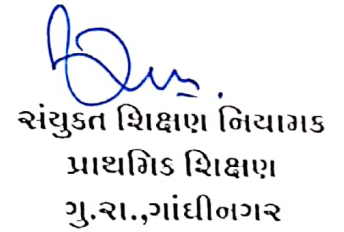 સંયુકત શિક્ષણ નિયામક
પ્રાથમિક શિક્ષણ
ગુ.રા.,ગાંધીનગર